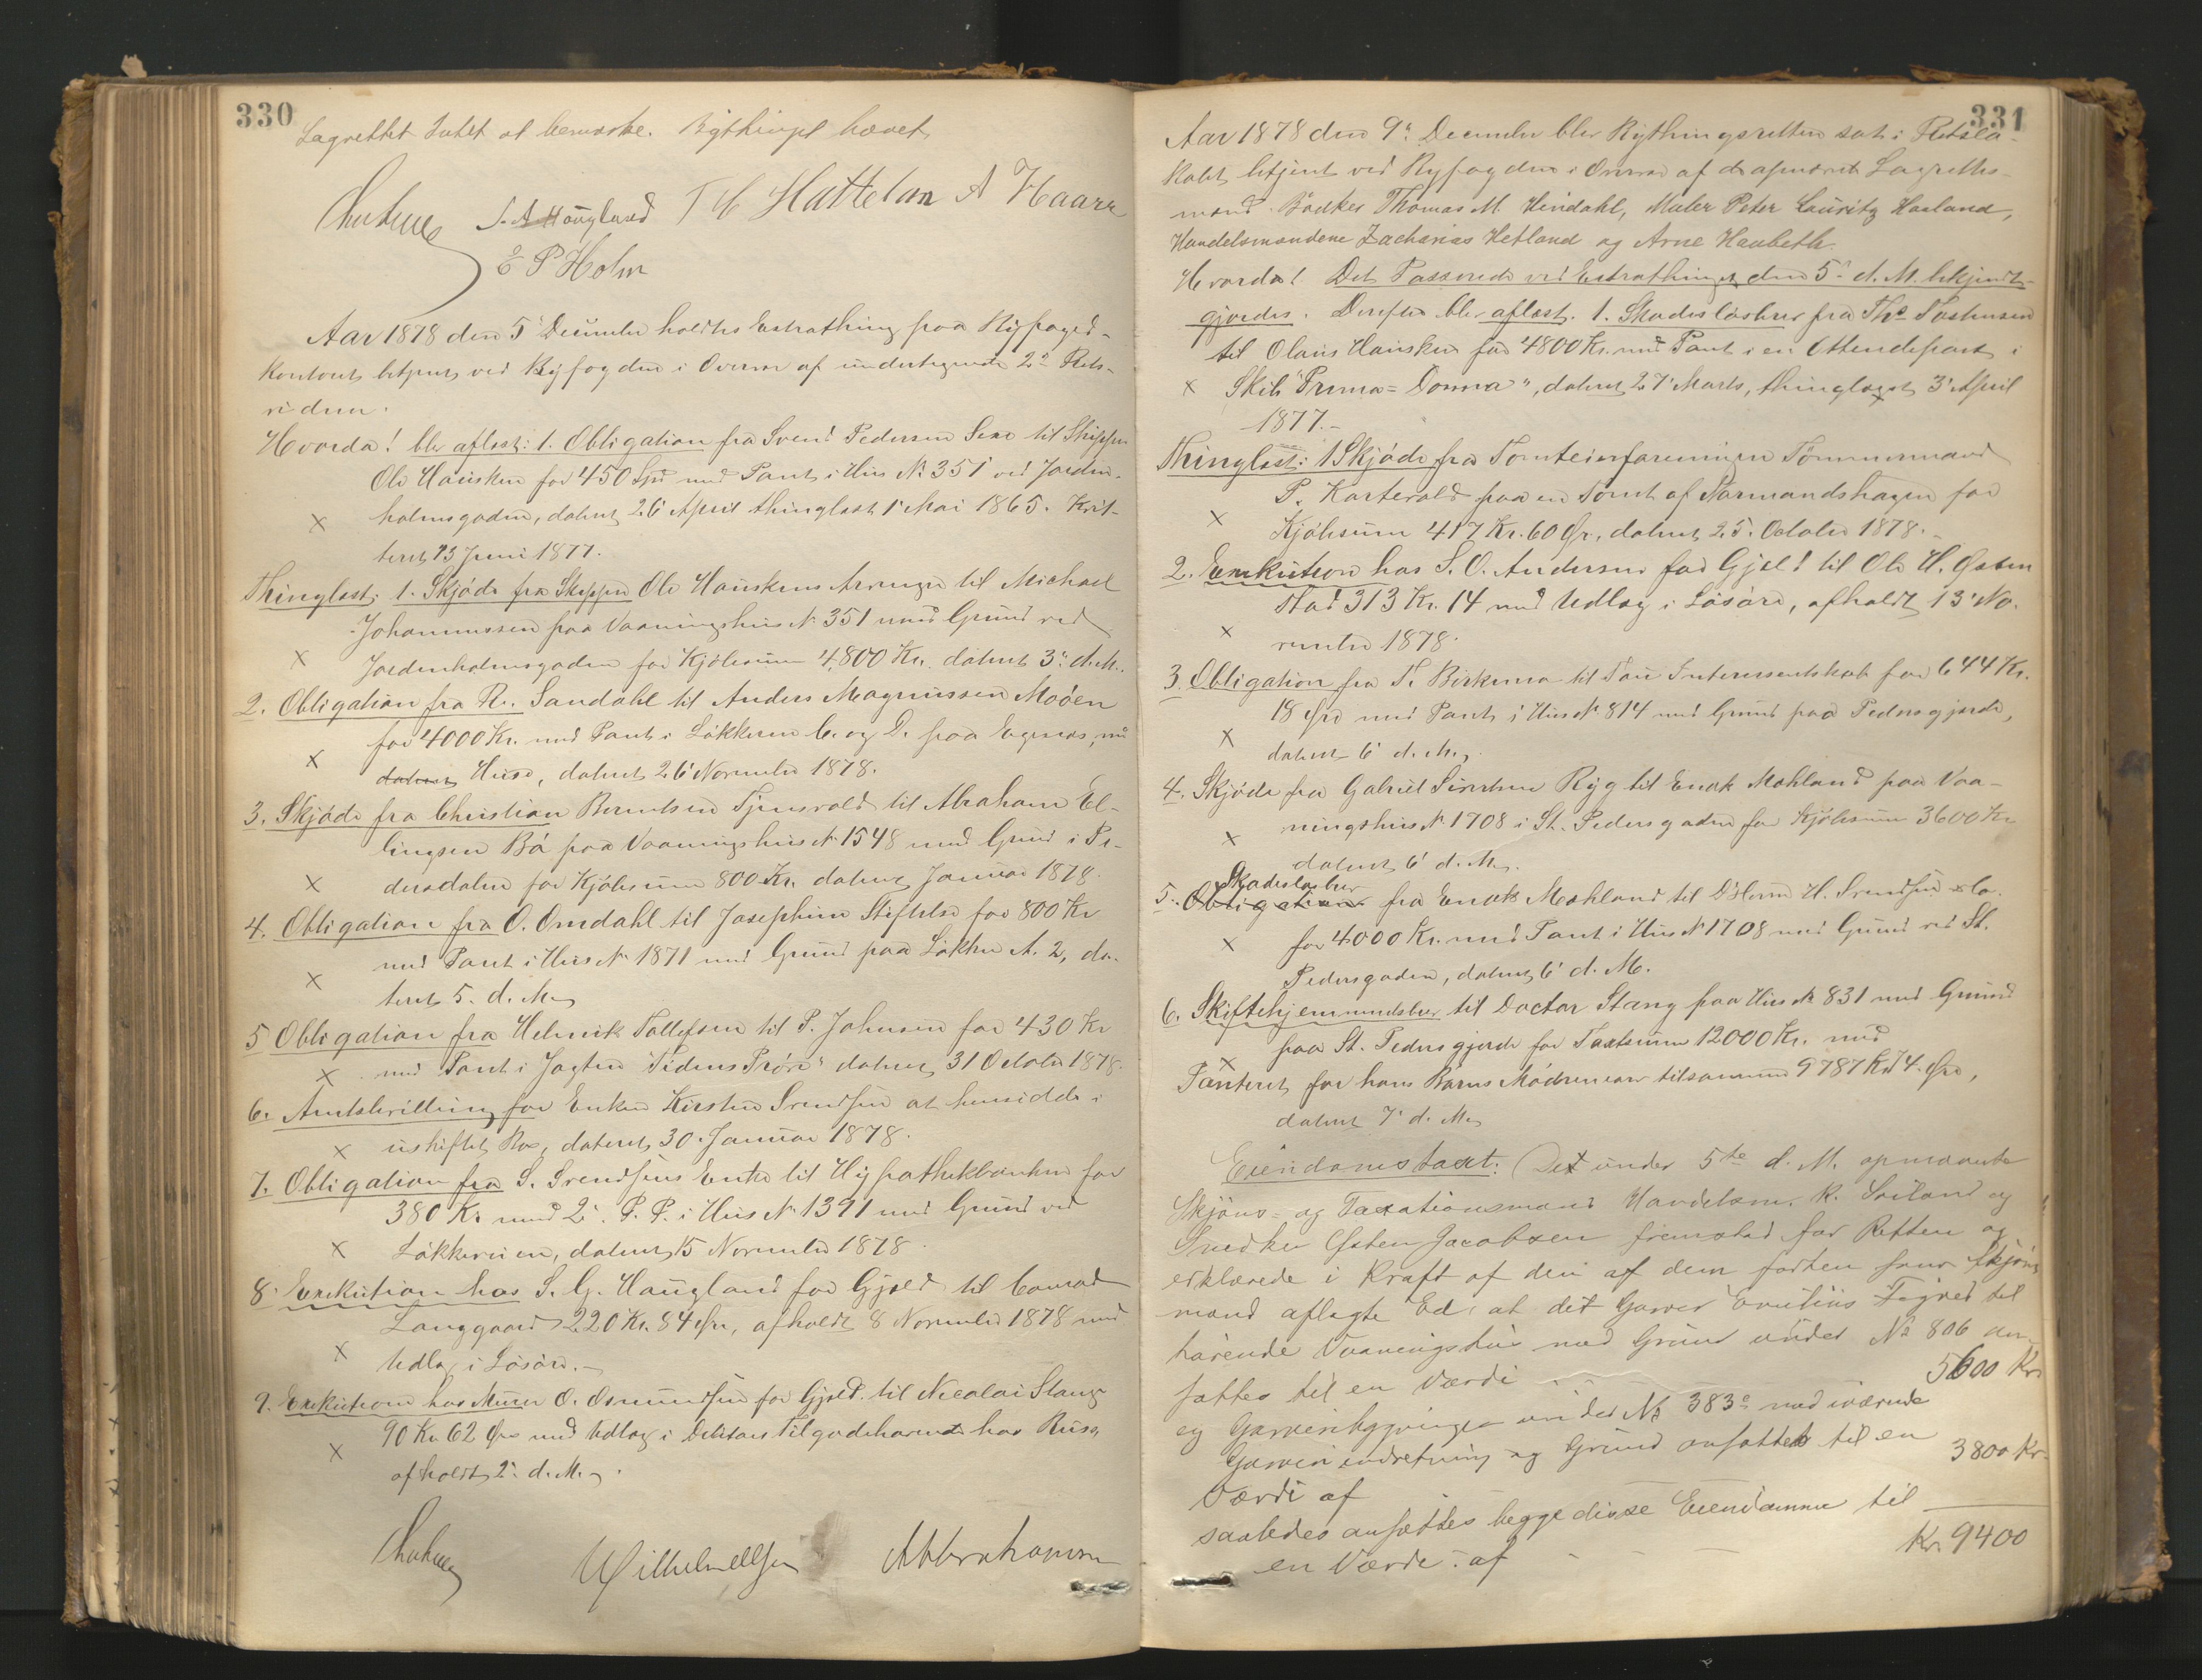 330
Lagrettet Intet at bemærke. Bythinget hævet
S. A. Haugland T H Hattelan A Haarr
E P Holm
Aar 1878 den 5' December holdtes Extrathing paa Byfoged-
kontoret betjent ved Byfogden i Overvær af undertegnede 2de Rets-
vidner.
Hvorda! blev aflæst: 1. Obligation fra Svend Pedersen til Skipper
Ole Hausken for 450 Spd med Pant i Hus No 351 ved Jorden-
x holmsgaden, dateret 26' April thinglæst 1' Mai 1865. Kvit-
teret 23 Juni 1877.
Thinglæst: 1. Skjøde fra Skipper Ole Hauskens Arvinger til Michael
Johannessen paa Vaaningshus No 351 med Grund ved
x Jordenholmsgaden for Kjøbesum 4,800 Kr. dateret 3' d. M.
2. Obligation fra R. Sandahl til Anders Magnussen Moøen
for 4000 Kr. med Pant i Løkkerne C. og D. paa Egenæs, med
x dateret Huse, dateret 26' November 1878.
3. Skjøde fra Christian Berentsen Tjensvold til Abraham El-
lingsen Bø paa Vaaningshus No 1548 med Grund i Pe-
x dersdalen for Kjøbesum 800 Kr. dateret Januar 1878.
4. Obligation fra O. Omdahl til Josephine Stiftelse for 800 Kr
med Pant i Hus No 1871 med Grund paa Løkke A. 2, da-
x teret 5. d. M.
5 Obligation fra Helmik Tollefsen til P. Johnsen for 430 Kr
x med Pant i Jagten "Tidens Prøve" dateret 31 October 1878.
6. Amtsbevilling for Enken Kirsten Svendsen at hensidde i
x uskiftet Bo, dateret 30. Januar 1878.
7. Obligation fra S. Svendsens Enke til Hypothekbanken for
380 Kr med 2' P. P. i Hus No 1391 med Grund ved
x Løkkeveien, dateret 15 November 1878
8. Exekution hos S. G. Haugland for Gjæld til Conrad
Langgaard 220 Kr. 84 Øre, afholdt 8 November 1878 med
x Udlæg i Løsøre.
9. Exekution hos Murer O. Osmundsen for Gjæld til Nicolai Stang
90 Kr 62 Øre med Udlæg i Debitors Tilgodehavende hos Rusg
x afholdt 2' d. M.
331
Aar 1878 den 9' December blev Bythingsretten sat i Retslo-
kalet betjent ved Byfogden i Overvær af de opnævnte Lagrettes-
mænd: Bødker Thomas M. Hindahl, Maler Peter Lauritz Haaland,
Handelsmændene Zacharias Hetland og Arne Haabeth.
Hvorda! Det Passerede ved Extrathinget den 5' d. M. bekjendt-
gjordes. Derefter blev aflæst. 1. Skadesløsbrev fra Ths Tashusen
til Olaus Hausken for 4800 Kr. med Pant i en Ottendepart i
x Skib "Prima-Donna", dateret 27' Marts, thinglæst 3' April
1877.
Thinglæst: 1 Skjøde fra Tomteinforeningen Tømmermand
P. Karterold paa en Tomt af Normandshagen for
x Kjøbesum 417 Kr. 60 Ør., dateret 25. October 1878.
2. Exekution hos S. O. Andersen for Gjæld til Ole H. Østen
stad 313 Kr. 14 med Udlæg i Løsøre, afholdt 13' No-
x vember 1878.
3. Obligation fra T. Birkemo til Tau Interessentskab for 644 Kr.
18 Øre med Pant i Hus No 814 med Grund paa Pedersgjerde,
x dateret 6' d. M.
4. Skjøde fra Gabriel Sivertsen Ryg til Enok Mæhland paa Vaa-
x ningshus No 1708 i St. Pedersgaden for Kjøbesum 3600 Kr
dateret 6' d. M.
Skadesløsbrev
5. Obligation fra Enok Mæhland til DHerrer H. Svendsen & Co.
x for 4000 Kr. med Pant i Hus No 1708 med Grund ved St.
Pedersgaden, dateret 6' d. M.
6. Skiftehjemmelsbrev til Doctor Stang paa Hus No 831 med Grund
x paa St. Pedersgjerde for Taxtsum 12000 Kr. med
Panteret for hans Børns Mødrenearv tilsammen 9787 Kr 74 Øre,
dateret 7' d. M.
Eiendomstaxt: Det under 5te d. M. opnævnte
Skjøns- og Taxationsmænd Handelsm. R. Soiland og
Snedker Østen Jacobsen fremstod for Retten og
erklærede i Kraft af den af dem forhen som Skjøns
mænd aflagte Ed, at det Garver Emelius Tegned til
hørende Vaaningshus med Grund under No 806 an-
sattes til en Værdi 5600 Kr.
og Garveribygningen under No 383a med iværende
Garveri indretning og Grund ansattes til en
Værdi af 3800 Kr.
saaledes ansættes begge disse Eiendomme til
en Værdi af Kr. 9400